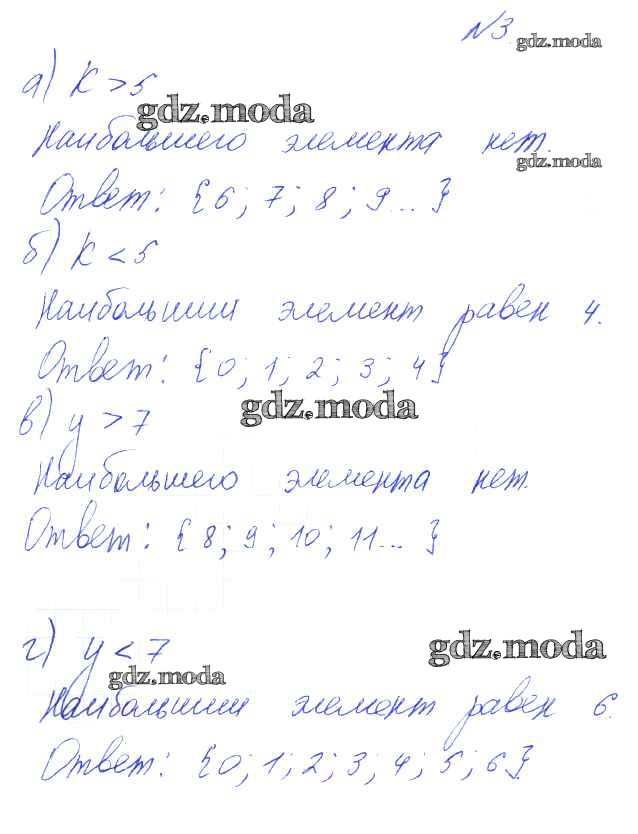 №3
gdz.moda
а) k > 5
gdz.moda
Наибольшего элемента нет.
gdz.moda
Ответ: {6; 7; 8; 9...}
б) k < 5
Наибольший элемент равен 4.
Ответ: {0; 1; 2; 3; 4}
gdz.moda
в) y > 7
Наибольшего элемента нет.
Ответ: {8; 9; 10; 11... }
г) y < 7
gdz.moda
gdz.moda
Наибольший элемент равен 6.
Ответ: {0; 1; 2; 3; 4; 5; 6}.